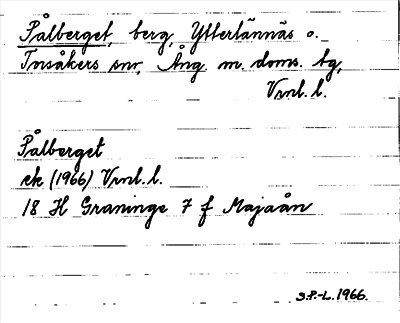 Pålberget, berg, Ytterlännäs o.
Torsåkers snr, Ång. m. doms. tg,
Vnl. l.
Pålberget
ek (1966) Vnl. l.
18 H Graninge 7 f Majaån
S.P.-L. 1966.